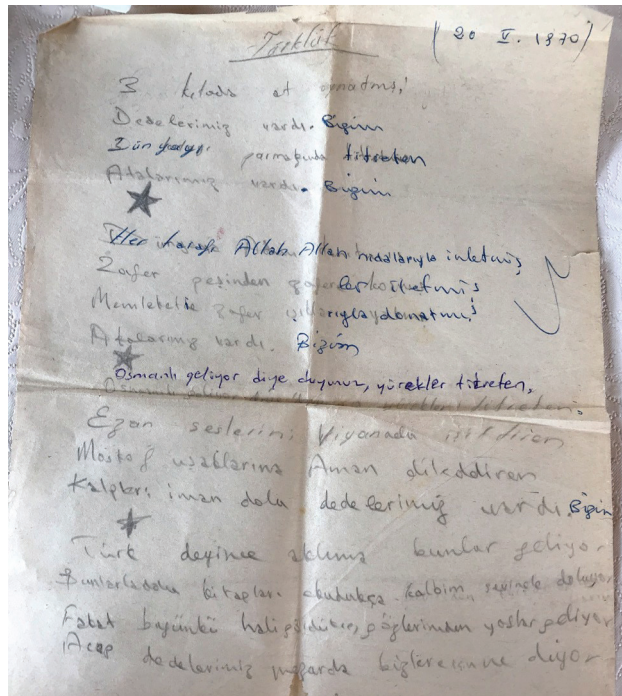 Türklük (20 V. 1970)
3 kıtada at oynatmış!
Dedelerimiz vardı. Bizim
parmağında titreten
Atalarımız vardı. Bizim
Her tarafı Allah Allah nidallarıyla inletmiş
Zafer peşinden zaferler
Memlekette zafer
Atalarımız vardı. Bizim
Osmanlı geliyor diye duyunuz, yürekler titreten,
Ezan seslerini Viyanada işitdiren
Moskof uşaklarına Aman dileddiren
Kalpleri iman dolu dedelerimiz vardı. Bizim
Türk deyince aklıma bunlar geliyor
Bunlarla dolu kitapları okudukça kalbim sevinçle doluyor
Fakat bugünkü hali gördükçe, gözlerimden yaşlar geliyor
Acep dedelerimiz mezarda bizlere ne diyor